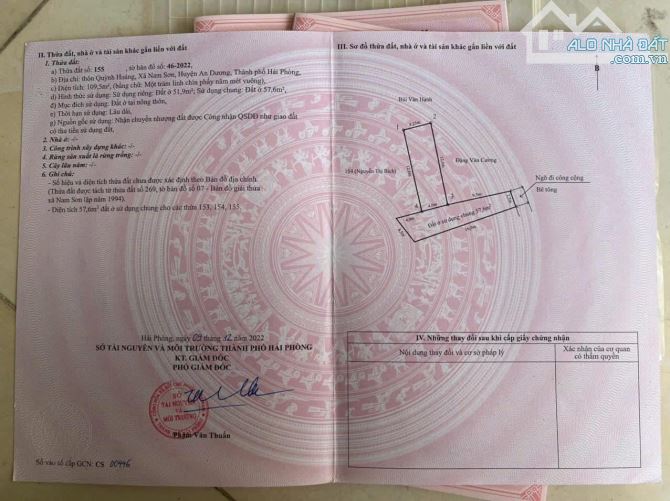 ALO NHÀ ĐẤT
II. Thửa đất, nhà ở và tài sản khác gắn liền với đất
1. Thửa đất:
a) Thửa đất số: 155 , tờ bản đồ số: 46-2022,
b) Địa chỉ: thôn Quỳnh Hoàng, Xã Nam Sơn, Huyện An Dương, Thành phố Hải Phòng,
c) Diện tích: 109,5m², (bằng chữ: Một trăm linh chín phẩy năm mét vuông),
d) Hình thức sử dụng: Sử dụng riêng: Đất ở 51,9m²; Sử dụng chung: Đất ở 57,6m²,
đ) Mục đích sử dụng: Đất ở tại nông thôn,
e) Thời hạn sử dụng: Lâu dài,
g) Nguồn gốc sử dụng: Nhận chuyển nhượng đất được Công nhận QSDĐ như giao đất
có thu tiền sử dụng đất,
2. Nhà ở: -/-
3. Công trình xây dựng khác: -/-
4. Rừng sản xuất là rừng trồng: -/-
5. Cây lâu năm: -/-
6. Ghi chú:
- Số hiệu và diện tích thửa đất chưa được xác định theo Bản đồ địa chính.
(Thửa đất được tách từ thửa đất số 269, tờ bản đồ số 07 - Bản đồ giải thửa
xã Nam Sơn lập năm 1994).
- Diện tích 57,6m² đất ở sử dụng chung cho các thửa 153, 154, 155.
Hải Phòng, ngày 09 12 2022
SỞ TÀI NGUYÊN VÀ MÔI TRƯỜNG THÀNH PHỐ HẢI PHÒNG
KT. GIÁM ĐỐC
PHÓ GIÁM ĐỐC
SỞ
TÀI NGUYÊN
VÀ
MÔI TRƯỜNG
Phạm Văn Thuấn
Số vào sổ cấp GCN: CS 00446
III. Sơ đồ thửa đất, nhà ở và tài sản khác gắn liền với đất
B
Bùi Văn Hành
1
2
Đặng Văn Cường
154 (Nguyễn Thị Bích)
Ngõ đi công cộng
Bê tông
Đất ở sử dụng chung 57,6m²
IV. Những thay đổi sau khi cấp giấy chứng nhận
Nội dung thay đổi và cơ sở pháp lý
Xác nhận của cơ quan
có thẩm quyền